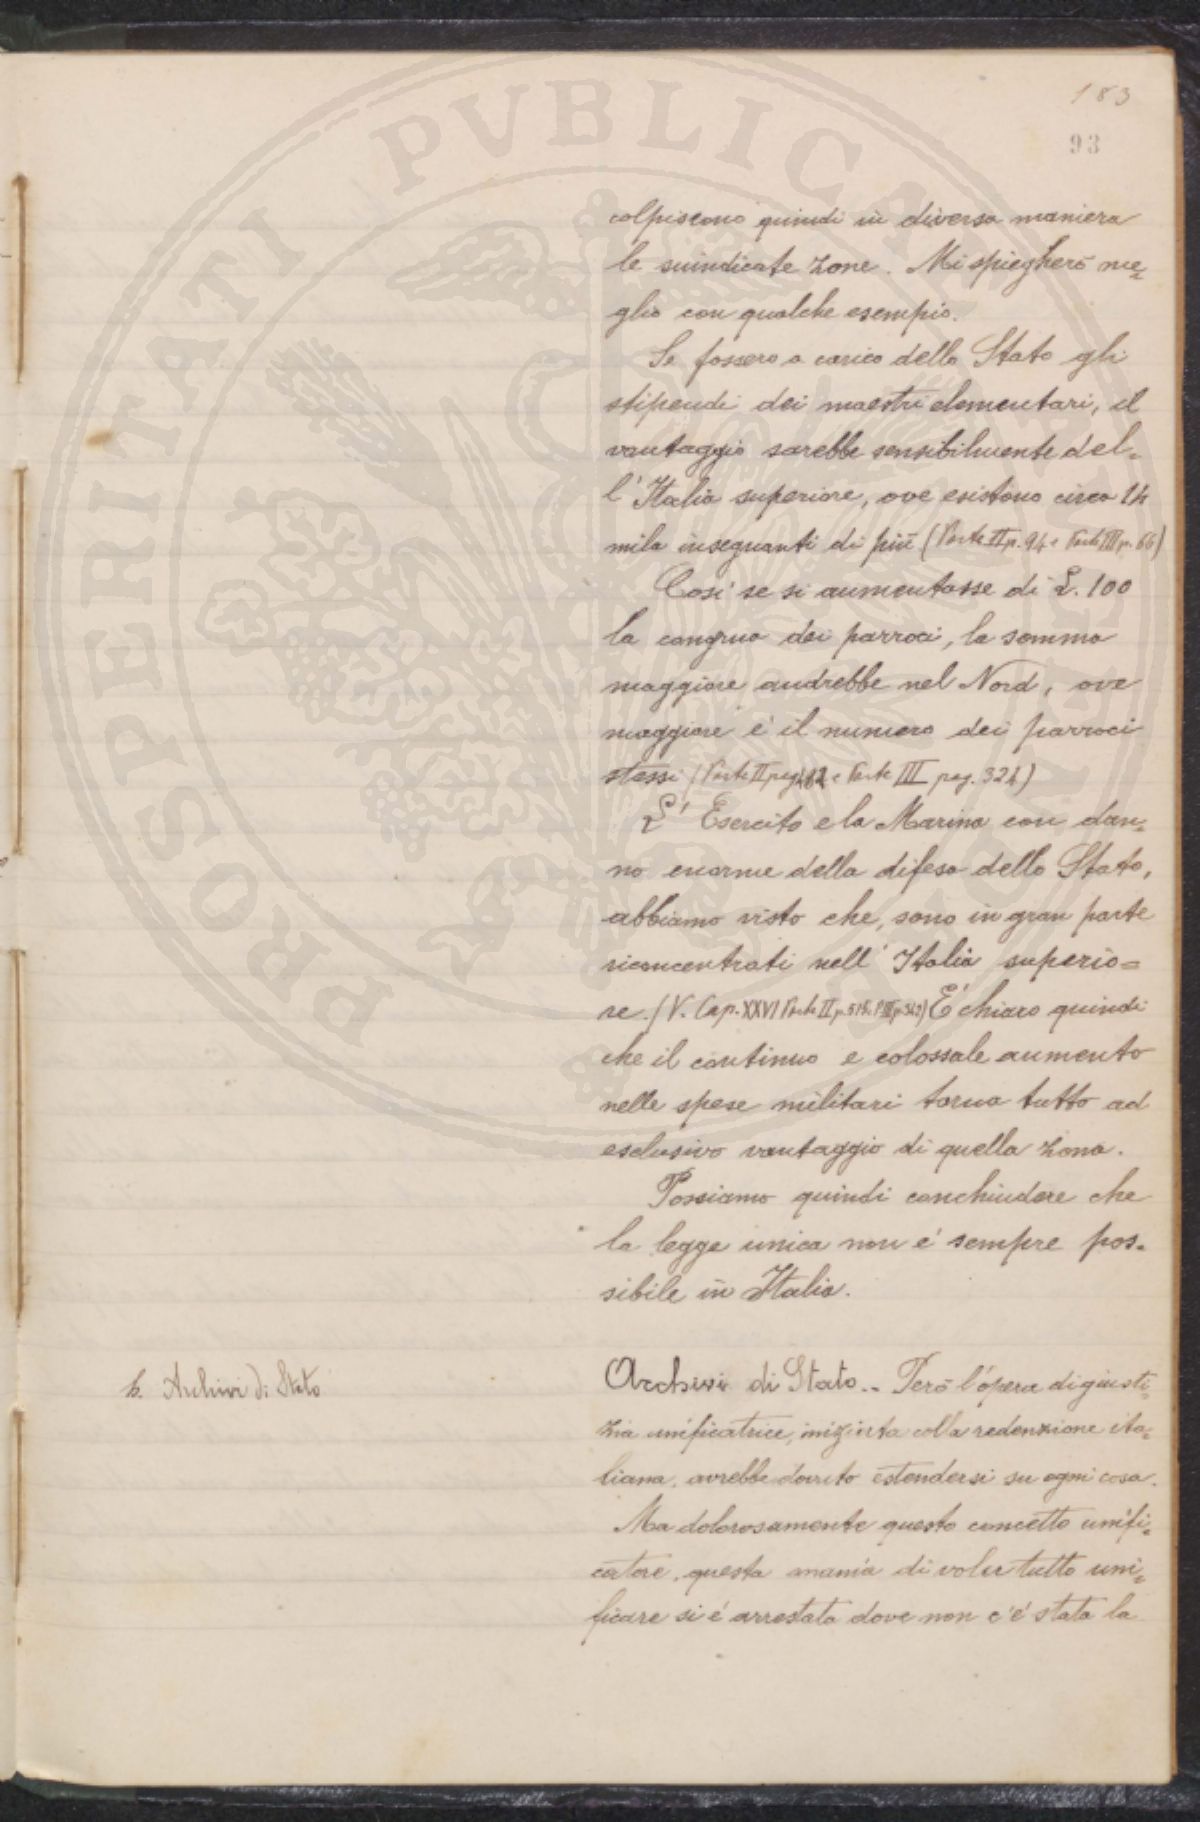 183
93
colpiscono quindi in diversa maniera
le suindicate zone. Mi spiegherò me=
glio con qualche esempio.
Se fossero a carico dello Stato gli
stipendi dei maestri elementari, il
vantaggio sarebbe sensibilmente del-
l'Italia superiore, ove esistono circa 14
mila insegnanti di più (Parte II p. 94 e Parte III p. 66)
Così se si aumentasse di L. 100
la congrua dei parroci, la somma
maggiore andrebbe nel Nord, ove
maggiore é il numero dei parroci
stessi (Parte II pag. e Parte III pag. 324)
L'Esercito e la Marina con dan=
no enorme della difesa dello Stato,
abbiamo visto che, sono in gran parte
riconcentrati nell'Italia superio=
re. (V. Cap. XXVI Parte II p. P. III p. ) E' chiaro quindi
che il continuo e colossale aumento
nelle spese militari torna tutto ad
esclusivo vantaggio di quella zona.
Possiamo quindi conchiudere che
la legge unica non é sempre pos-
sibile in Italia.
b. Archivi di Stato
Archivi di Stato.- Però l'opera di giusti=
zia unificatrice, iniziata colla redenzione ita=
liana, avrebbe dovuto estendersi su ogni cosa.
Ma dolorosamente questo concetto unifi=
catore, questa mania di voler tutto uni=
ficare si é arrestata dove non c'é stata la
PROSPERITATI PVBLICAE